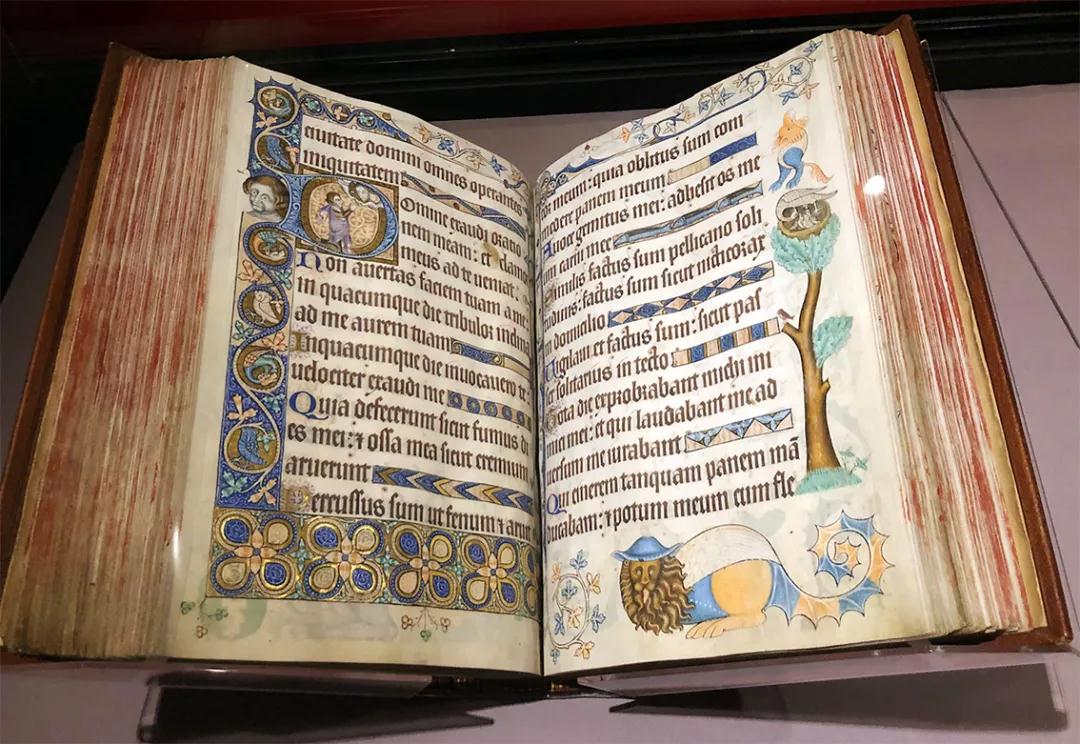 ciuitate domini omnes operantes
iniquitatem
Domine exaudi oratio
nem meam: et clamo
meus ad te ueniat
Non auertas faciem tuam a me
in quacumque die tribulor inclina
ad me aurem tuam
Inquacumque die inuocauero te:
uelociter exaudi me
Quia defecerunt sicut fumus di
es mei: ⁊ ossa mea sicut cremium
aruerunt
Percussus sum ut fenum ⁊ aruit
cor meum: quia oblitus sum com
medere panem meum
A uoce gemitus mei: adhesit os me
um carni mee
Similis factus sum pellicano soli
tudinis: factus sum sicut nicticorax
in domicilio
Vigilaui et factus sum: sicut pas
ser solitarius in tecto
Tota die exprobrabant michi ini
mici mei: et qui laudabant me ad
uersum me iurabant
Qui cinerem tanquam panem mā
ducabam: ⁊ potum meum cum fle